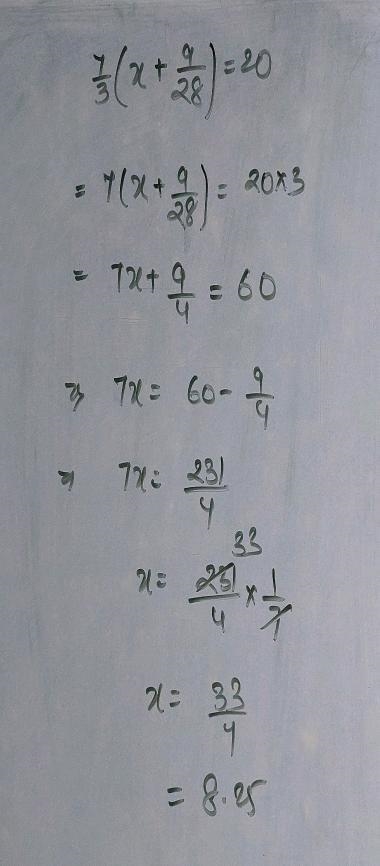 7/3 (x + 9/28) = 20
= 7(x + 9/28) = 20×3
= 7x + 9/4 = 60
⇒ 7x = 60 - 9/4
⇒ 7x = 231/4
x = 231/4 × 1/7 33
x = 33/4
= 8.25